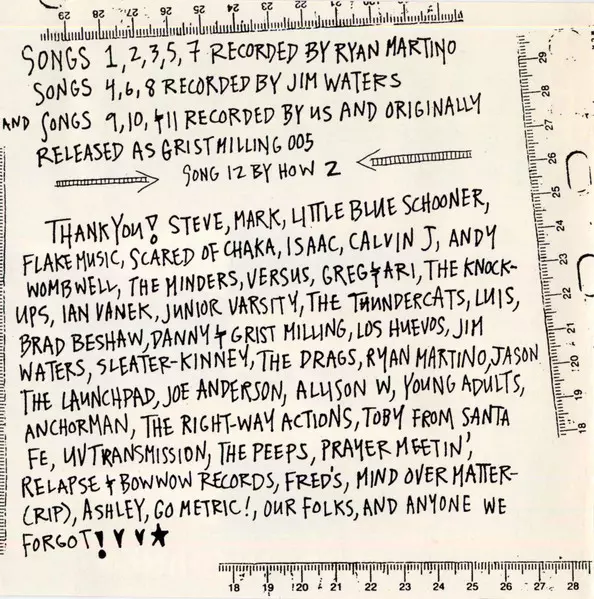 29 28 27 26 25 24 23
SONGS 1,2,3,5,7 RECORDED BY RYAN MARTINO
SONGS 4,6,8 RECORDED BY JIM WATERS
AND SONGS 9,10,+11 RECORDED BY US AND ORIGINALLY
RELEASED AS GRISTMILLING 005
SONG 12 BY HOW 2
THANK YOU! STEVE, MARK, LITTLE BLUE SCHOONER,
FLAKE MUSIC, SCARED OF CHAKA, ISAAC, CALVIN J, ANDY
WOMBWELL, THE MINDERS, VERSUS, GREG + ARI, THE KNOCK-
UPS, IAN VANEK, JUNIOR VARSITY, THE THUNDERCATS, LUIS,
BRAD BESHAW, DANNY + GRIST MILLING, LOS HUEVOS, JIM
WATERS, SLEATER-KINNEY, THE DRAGS, RYAN MARTINO, JASON
THE LAUNCHPAD, JOE ANDERSON, ALLISON W, YOUNG ADULTS,
ANCHORMAN, THE RIGHT-WAY ACTIONS, TOBY FROM SANTA
FE, UVTRANSMISSION, THE PEEPS, PRAYER MEETIN',
RELAPSE + BOWWOW RECORDS, FRED'S, MIND OVER MATTER-
(RIP), ASHLEY, GO METRIC!, OUR FOLKS, AND ANYONE WE
FORGOT! ♥ ♥ ★
29
28
27
26
25
24
23
22
21
20
19
18
18 19 20 21 22 23 24 25 26 27 28